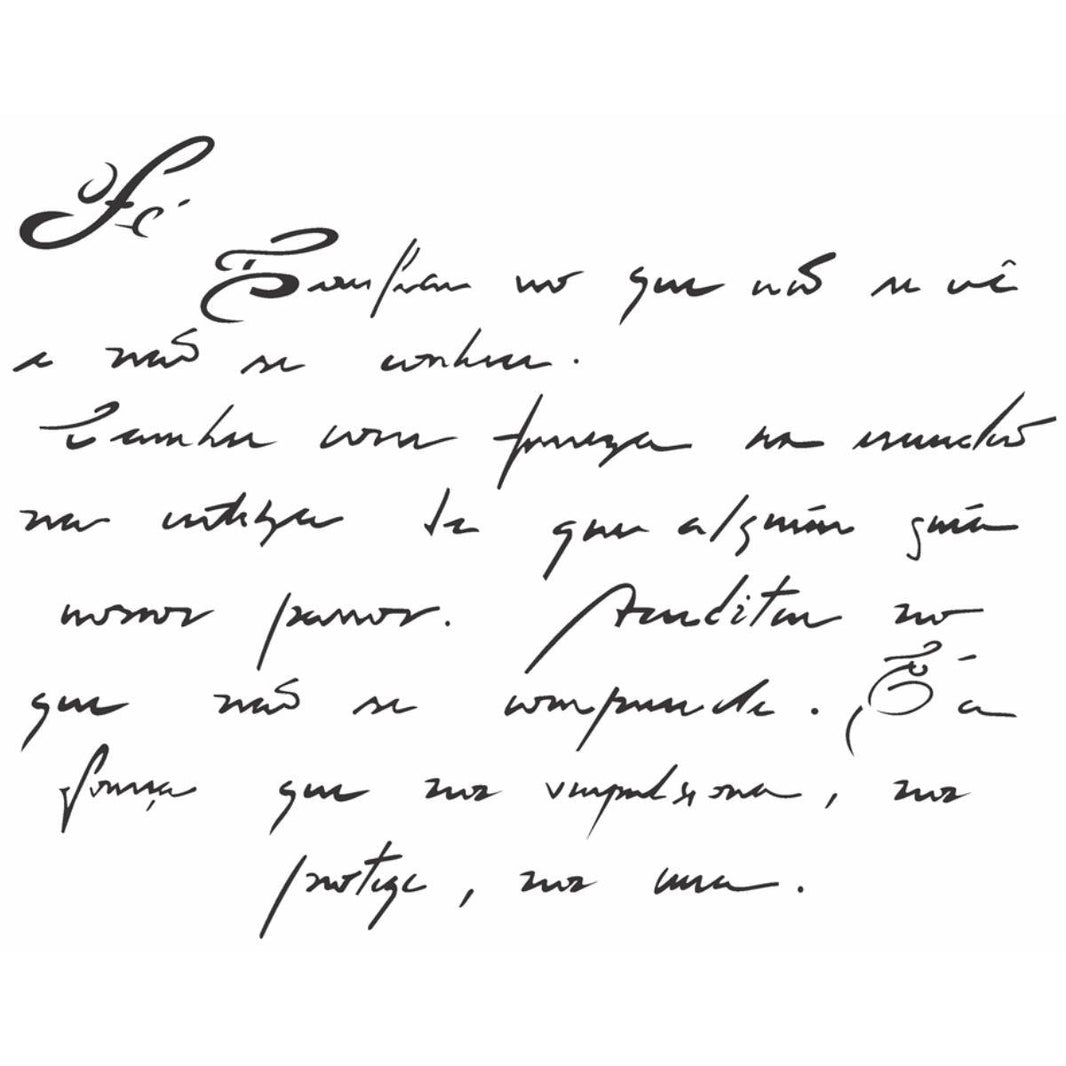 Fé
Confiar no que não se vê
e não se conhece.
Caminhar com firmeza na escuridão
na certeza de que alguém guia
nossos passos. Acreditar no
que não se compreende. É a
força que nos impulsiona, nos
protege, nos